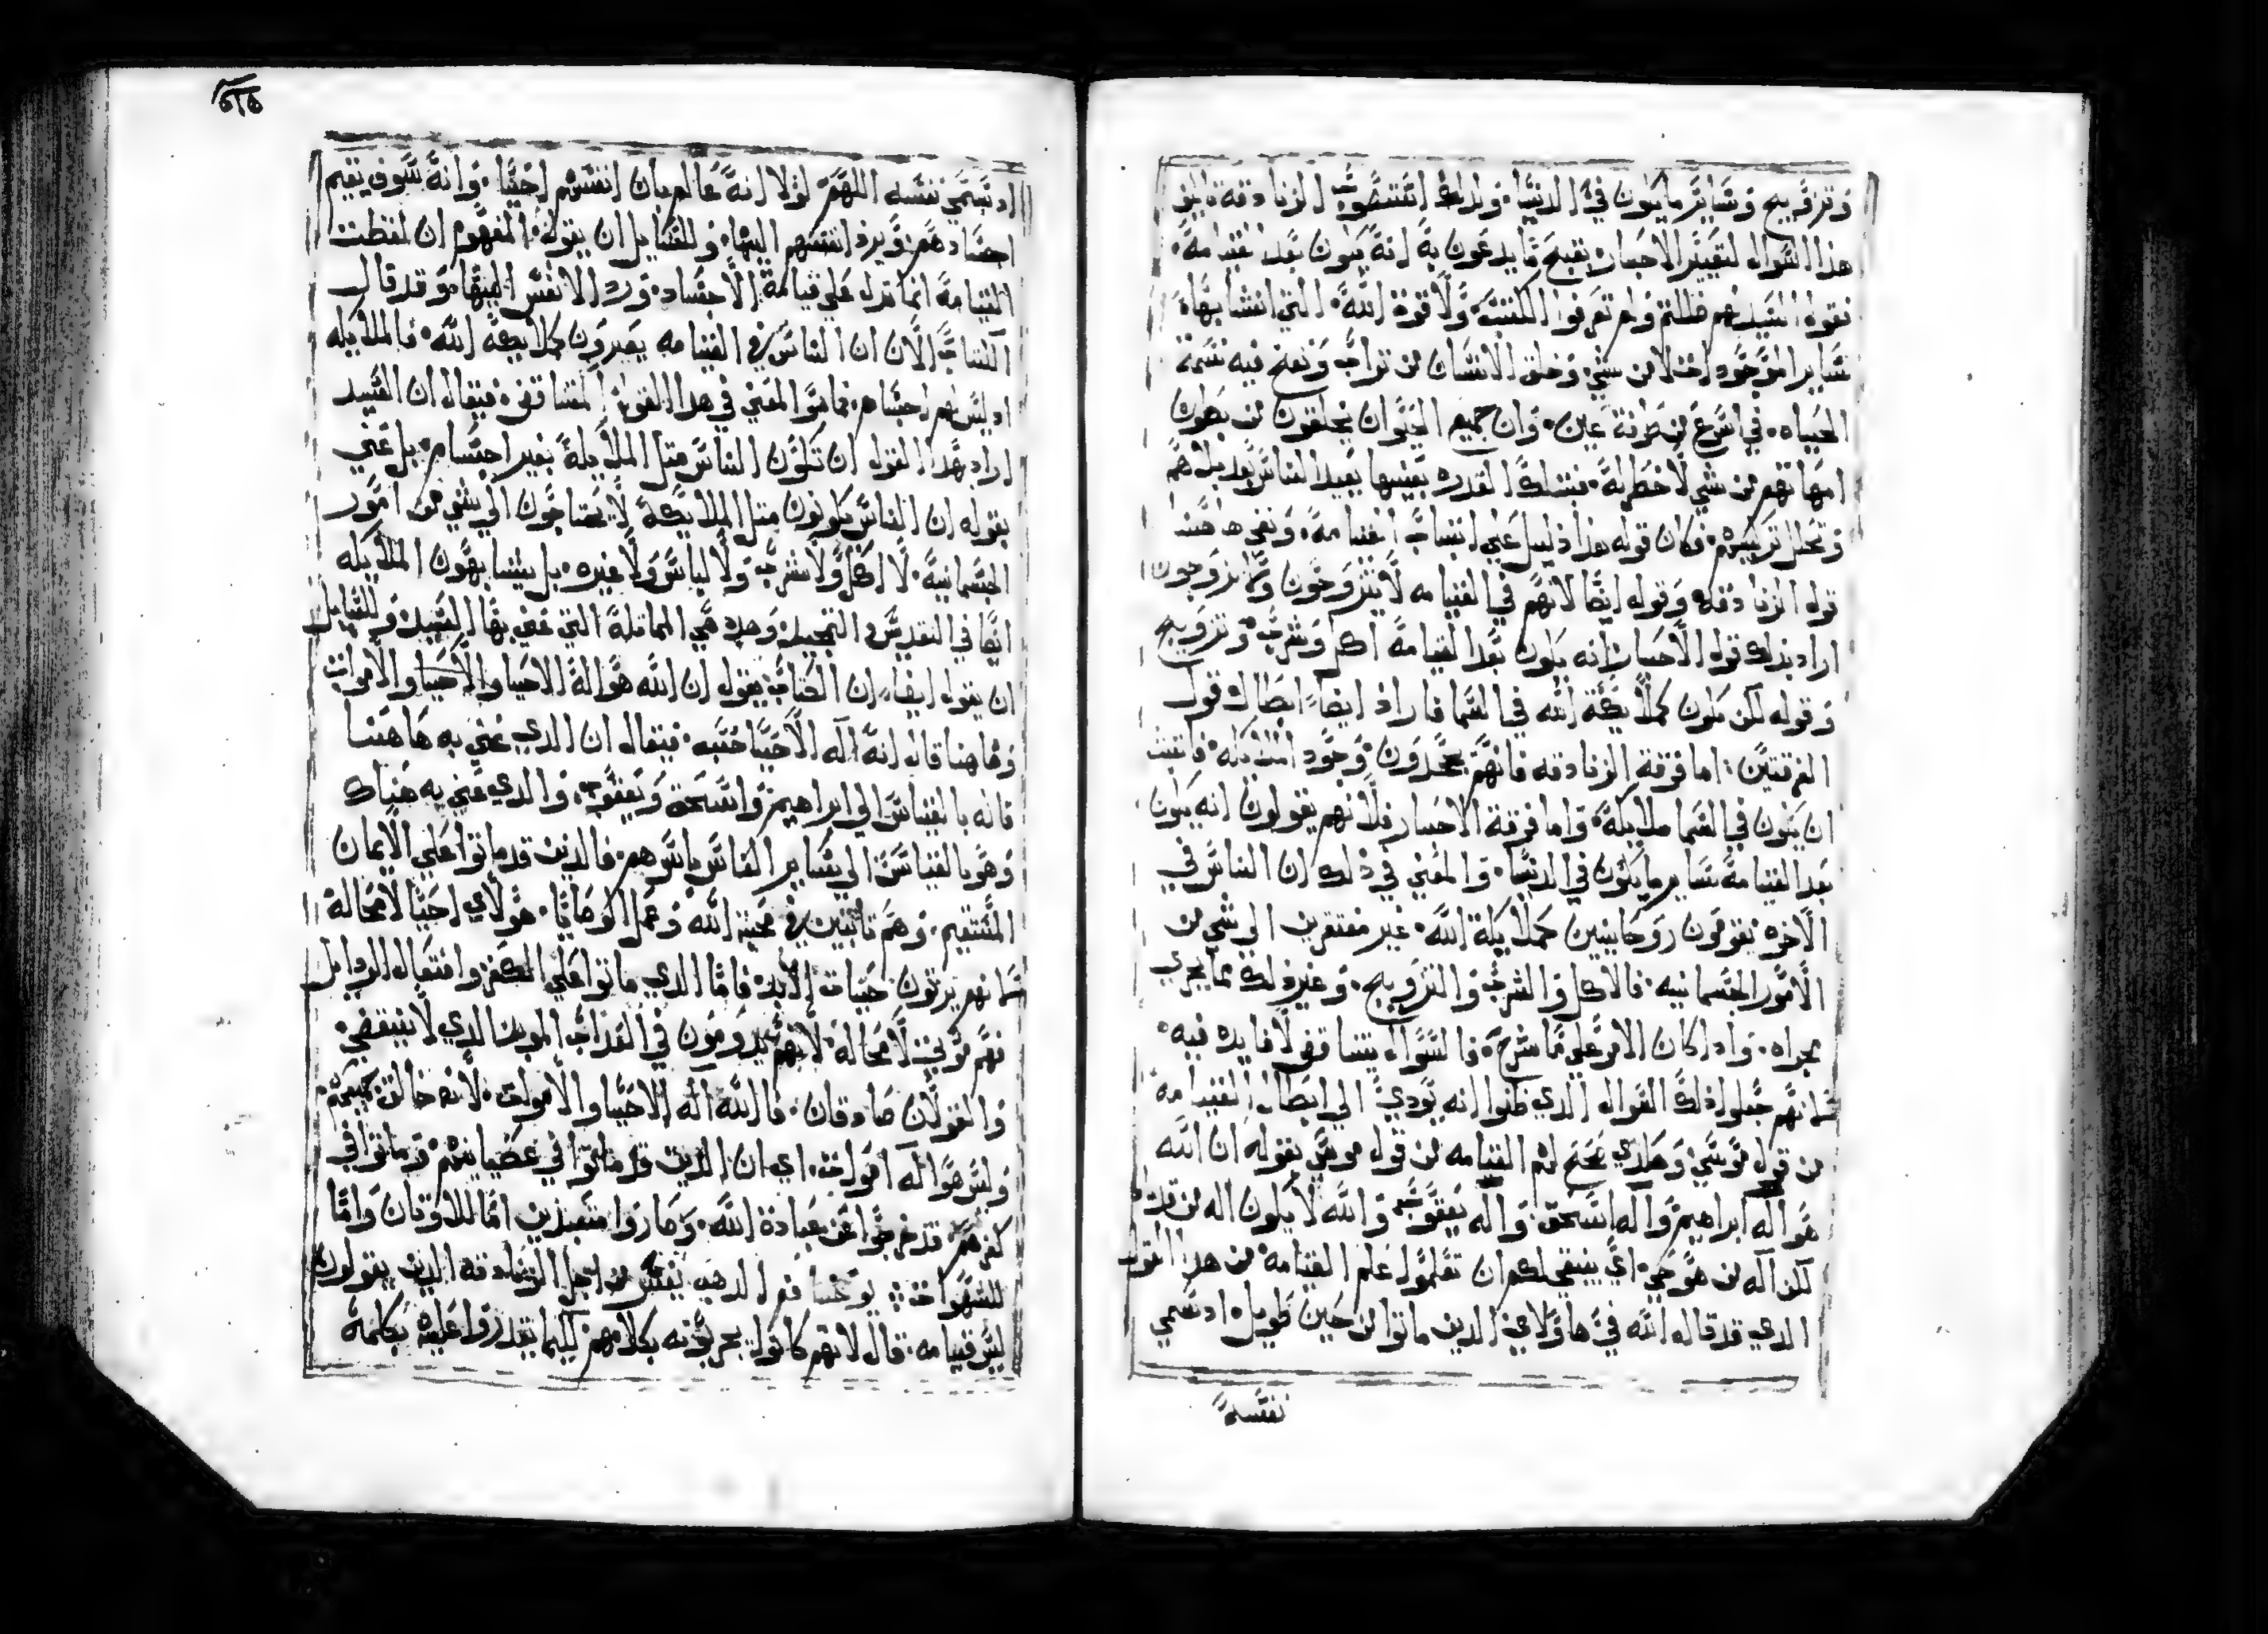 وتزويج وساير ما يكون في الدنيا. ولذلك اقتضوب الزنادقه بالين
هذا السوال لتعيير الاحبار بقبح ما يدعون به انه يكون بعد القيامة.
نقول السيد لهم ظللتم ولم تعرفوا الكتب ولا قوة الله. التي انشا بها
ساير الموجودات لا من شي وخلق الانسان من تراب ونفخ فيه نسمة
الحياه. في اسرع من طرفة عين. وان جميع الحيوان يخلقون من بطون
امهاتهم من شي لا خطر له. فبتلك القدره بعينها يعيد الناس بعد بلاهم
وتحلل تركيبهم. فكان قوله هذا دليل علي اتباب القيامة. ونفي هاهنا
قول الزنادقه وقوله ايضا لانهم في القيامه لا يتزوجون ولا يزوجون
اراد بذلك قول الاحبار انه يكون بعد القيامة اكل وشرب وتزويج
وقوله لكن يكون كملايكة الله في السما فاراد ايضا ابطال قول
الفرقتين: اما فرقة الزنادقه فانهم يجحدون وجود الملايكه. فاتبت
ان يكون في السما ملايكة. واما فرقة الاحبار فلانهم يقولون انه يكون
بعد القيامة ساير ما يكون في الدنيا. والمعني في ذلك ان الناس في
الاخره يقومون روحانيين كملايكة الله. غير مفتقرين الي شي من
الامور الجسمانيه. فالاكل والشرب والتزويج. وغير ذلك مما يجري
مجراه. واذا كان الامر علي ما شرح. فالسوال يتناقض لا فايده فيه.
ثم انهم جعلوا ذلك السوال الذي ظنوا انه يودي الي ابطال القيامة
من قول موسي وهكدي يحتج لهم القيامه من قول موسي بقوله ان الله
هو اله ابراهيم واله اسحق. واله يعقوب والله لا يكون اله من قد مات
لكن اله من هو حي. اي ينبغي لكم ان تعلموا علم القيامة من هذا القول
الدي قد قاله الله في هاولاي الدين ماتوا من حين طويل. اد تسمي
نفسه
اد تسمي نفسه اللهم لولا انه عالم بان انفسهم احيا. وانه سوف يقيم
اجسادهم. ويرد انفسهم اليها. وللقايل ان يقول: المفهوم ان لفظت
القيامة انما تدل علي قيامة الاجساد. ورد الانفس اليها وقد قال
الكتاب الان ان الناس في القيامه يصيرون كملايكة الله. فالملايكه
اد ليس لهم اجسام. فما هو المعني في هدا القول المتناقض. فيقال ان السيد
اراد بهدا القول ان تكون الناس متل الملايكة بغير اجسام. بل عني
بقوله ان الناس يكونون متل الملايكة لا يحتاجون الي شي من امور
الجسمانية. لا اكل ولا شرب ولا لباس ولا غيره. بل يتشابهون الملايكه
ايضا في التقديس والتمجيد. وهده هي المماتلة التي عني بها السيد. وللقايل
ان يقول ايضا. ان الكتاب يقول ان الله هو اله الاحيا والاحيا والاموات
وهاهنا قال انه اله الاحيا حسب. فيقال ان الدي عني به هاهنا
قاله بالقياس الي ابراهيم واسحق ويعقوب. والدي عني به هناك
وهو بالقياس الي ساير الناس باسرهم. فالدين قد ماتوا علي الايمان
المستقيم. وهم تابتين في محبة الله وعمل الوصايا. هولاي احيا لا محالة
ثم انهم يرتون حيات الابد. فاما الدي ماتوا علي الكفر وافتعال الردايل
فهم موتي لا محالة. لانهم يدومون في العداب الموبد الدي لا ينقضي.
والقولان صادقان. فالله اله الاحيا والاموات. لانه خالق جميعهم.
وليس هو اله اموات. اي ان الدين قد ماتوا في عصيانهم قد ماتوا في
كفرهم. قد خرجوا عن عبادة الله. وصاروا متعبدين اما للاوتان واما
للشهوات. يوحنا فم الدهب يفسر من اجل الزنادقه الدين يقولون
ليس قيامه. قال لانهم كانوا يجربونه بكلامهم لكيما يقدروا عليه بكلمة